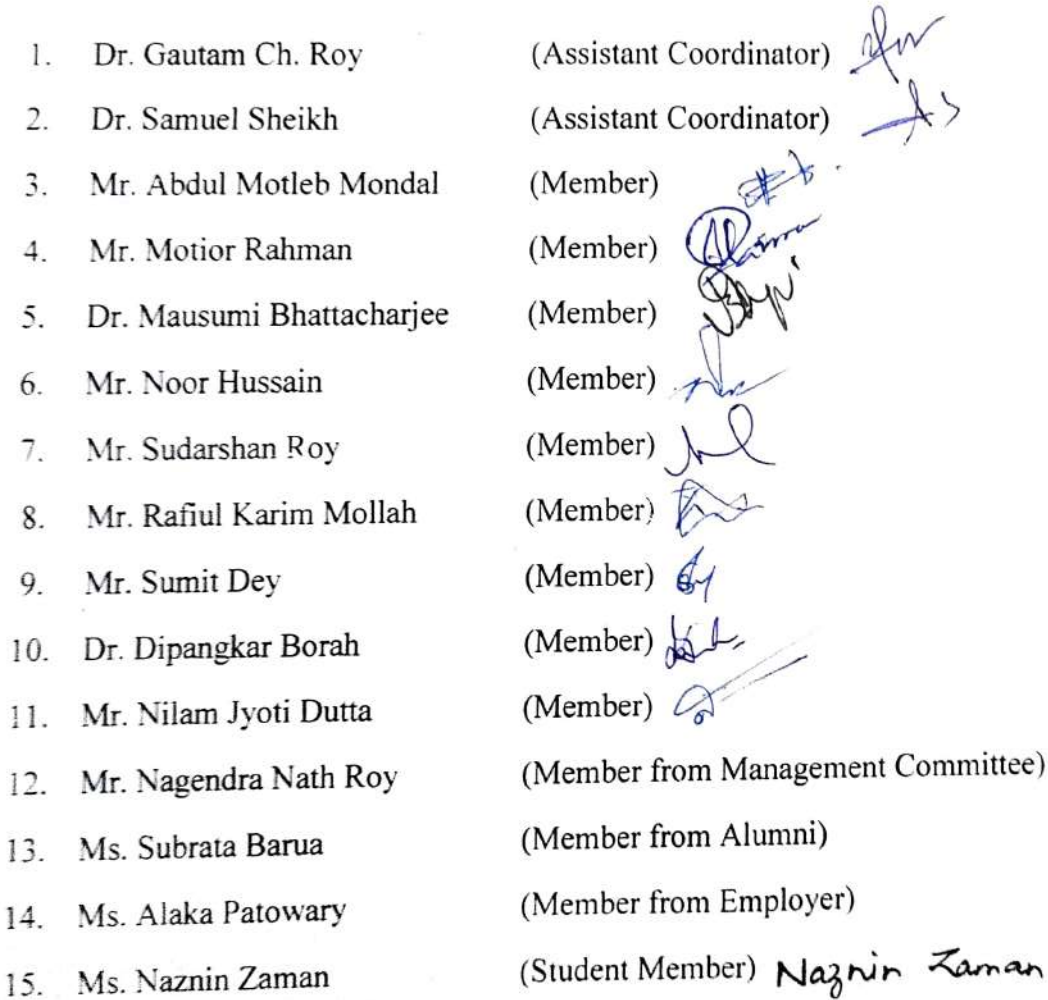 1. Dr. Gautam Ch. Roy (Assistant Coordinator)
2. Dr. Samuel Sheikh (Assistant Coordinator)
3. Mr. Abdul Motleb Mondal (Member)
4. Mr. Motior Rahman (Member)
5. Dr. Mausumi Bhattacharjee (Member)
6. Mr. Noor Hussain (Member)
7. Mr. Sudarshan Roy (Member)
8. Mr. Rafiul Karim Mollah (Member)
9. Mr. Sumit Dey (Member)
10. Dr. Dipangkar Borah (Member)
11. Mr. Nilam Jyoti Dutta (Member)
12. Mr. Nagendra Nath Roy (Member from Management Committee)
13. Ms. Subrata Barua (Member from Alumni)
14. Ms. Alaka Patowary (Member from Employer)
15. Ms. Naznin Zaman (Student Member) Naznin Zaman